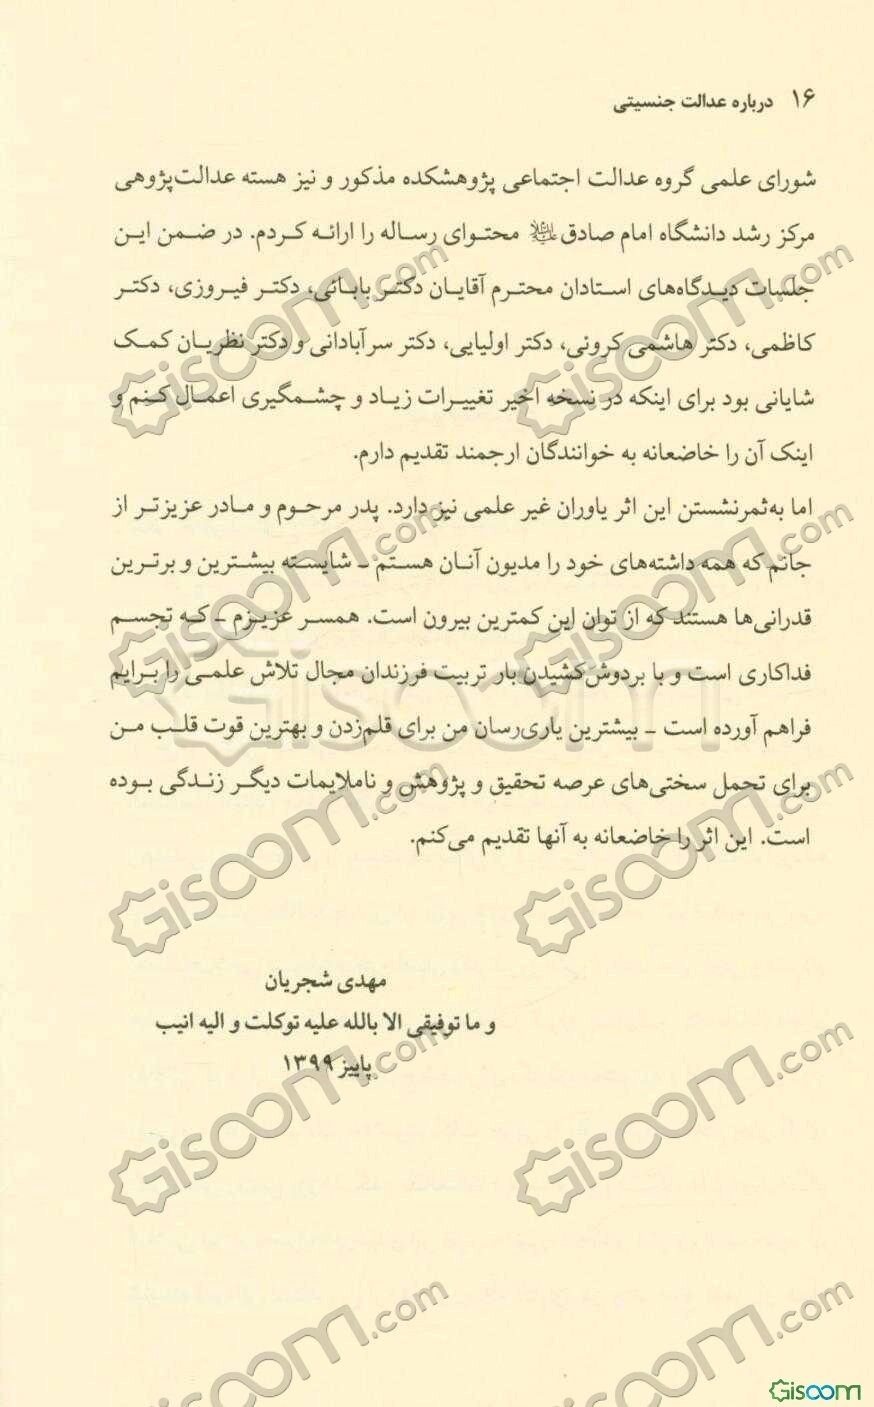 ۱۶ درباره عدالت جنسیتی
شورای علمی گروه عدالت اجتماعی پژوهشکده مذکور و نیز هسته عدالت‌پژوهی
مرکز رشد دانشگاه امام صادق محتوای رساله را ارائه کردم. در ضمن این
جلسات دیدگاه‌های استادان محترم آقایان دکتر بابائی، دکتر فیروزی، دکتر
کاظمی، دکتر هاشمی کرونی، دکتر اولیایی، دکتر سرآبادانی و دکتر نظریان کمک
شایانی بود برای اینکه در نسخه اخیر تغییرات زیاد و چشمگیری اعمال کنم و
اینک آن را خاضعانه به خوانندگان ارجمند تقدیم دارم.
اما به‌ثمرنشستن این اثر یاوران غیر علمی نیز دارد. پدر مرحوم و مادر عزیزتر از
جانم که همه داشته‌های خود را مدیون آنان هستم ـ شایسته بیشترین و برترین
قدرانی‌ها هستند که از توان این کمترین بیرون است. همسر عزیزم ـ که تجسم
فداکاری است و با بردوش‌کشیدن بار تربیت فرزندان مجال تلاش علمی را برایم
فراهم آورده است ـ بیشترین یاری‌رسان من برای قلم‌زدن و بهترین قوت قلب من
برای تحمل سختی‌های عرصه تحقیق و پژوهش و ناملایمات دیگر زندگی بوده
است. این اثر را خاضعانه به آنها تقدیم می‌کنم.
مهدی شجریان
و ما توفیقی الا بالله علیه توکلت و الیه انیب
پاییز ۱۳۹۹
Giscom.com
Giscom.com
Giscom.com
Giscom.com
Giscom
Giscom.com
Giscom.com
Giscom.com
Giscom.com
Giscom.com
Giscom.com
Giscom